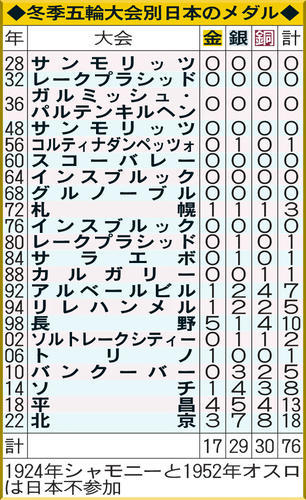 ◆冬季五輪大会別日本のメダル◆
年 大会 金 銀 銅 計
28 サンモリッツ 0 0 0 0
32 レークプラシッド 0 0 0 0
36 ガルミッシュ・パルテンキルヘン 0 0 0 0
48 サンモリッツ 0 0 0 0
56 コルティナダンペッツォ 0 1 0 1
60 スコーバレー 0 0 0 0
64 インスブルック 0 0 0 0
68 グルノーブル 0 0 0 0
72 札幌 1 1 1 3
76 インスブルック 0 0 0 0
80 レークプラシッド 0 1 0 1
84 サラエボ 0 1 0 1
88 カルガリー 0 0 1 1
92 アルベールビル 1 2 4 7
94 リレハンメル 1 2 2 5
98 長野 5 1 4 10
02 ソルトレークシティー 0 1 1 2
06 トリノ 1 0 0 1
10 バンクーバー 0 3 2 5
14 ソチ 1 4 3 8
18 平昌 4 5 4 13
22 北京 3 7 8 18
計 17 29 30 76
1924年シャモニーと1952年オスロ
は日本不参加